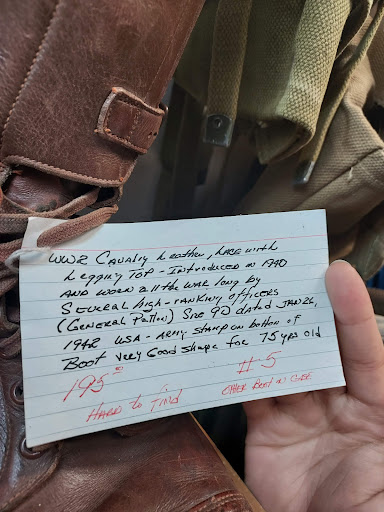 WW2 Cavalry Leather, Lace with
Legging Top - Introduced in 1940
and worn all the war long by
Several high-ranking officers
(General Patton) Size 9D dated Jan 26,
1942 USA - Army stamp on bottom of
Boot Very Good Shape for 75 yrs old
195 00
# 5
Hard to Find
Other Boot in Case